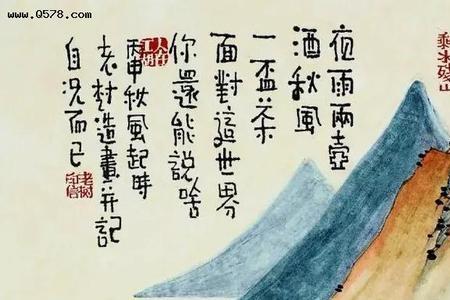 www.0578.com
夜雨兩壺
酒秋風
一盃茶
面對這世界
你還能說啥
丙申秋風起時
老村造畫并記
自況而已
人在
江湖
剩水殘山